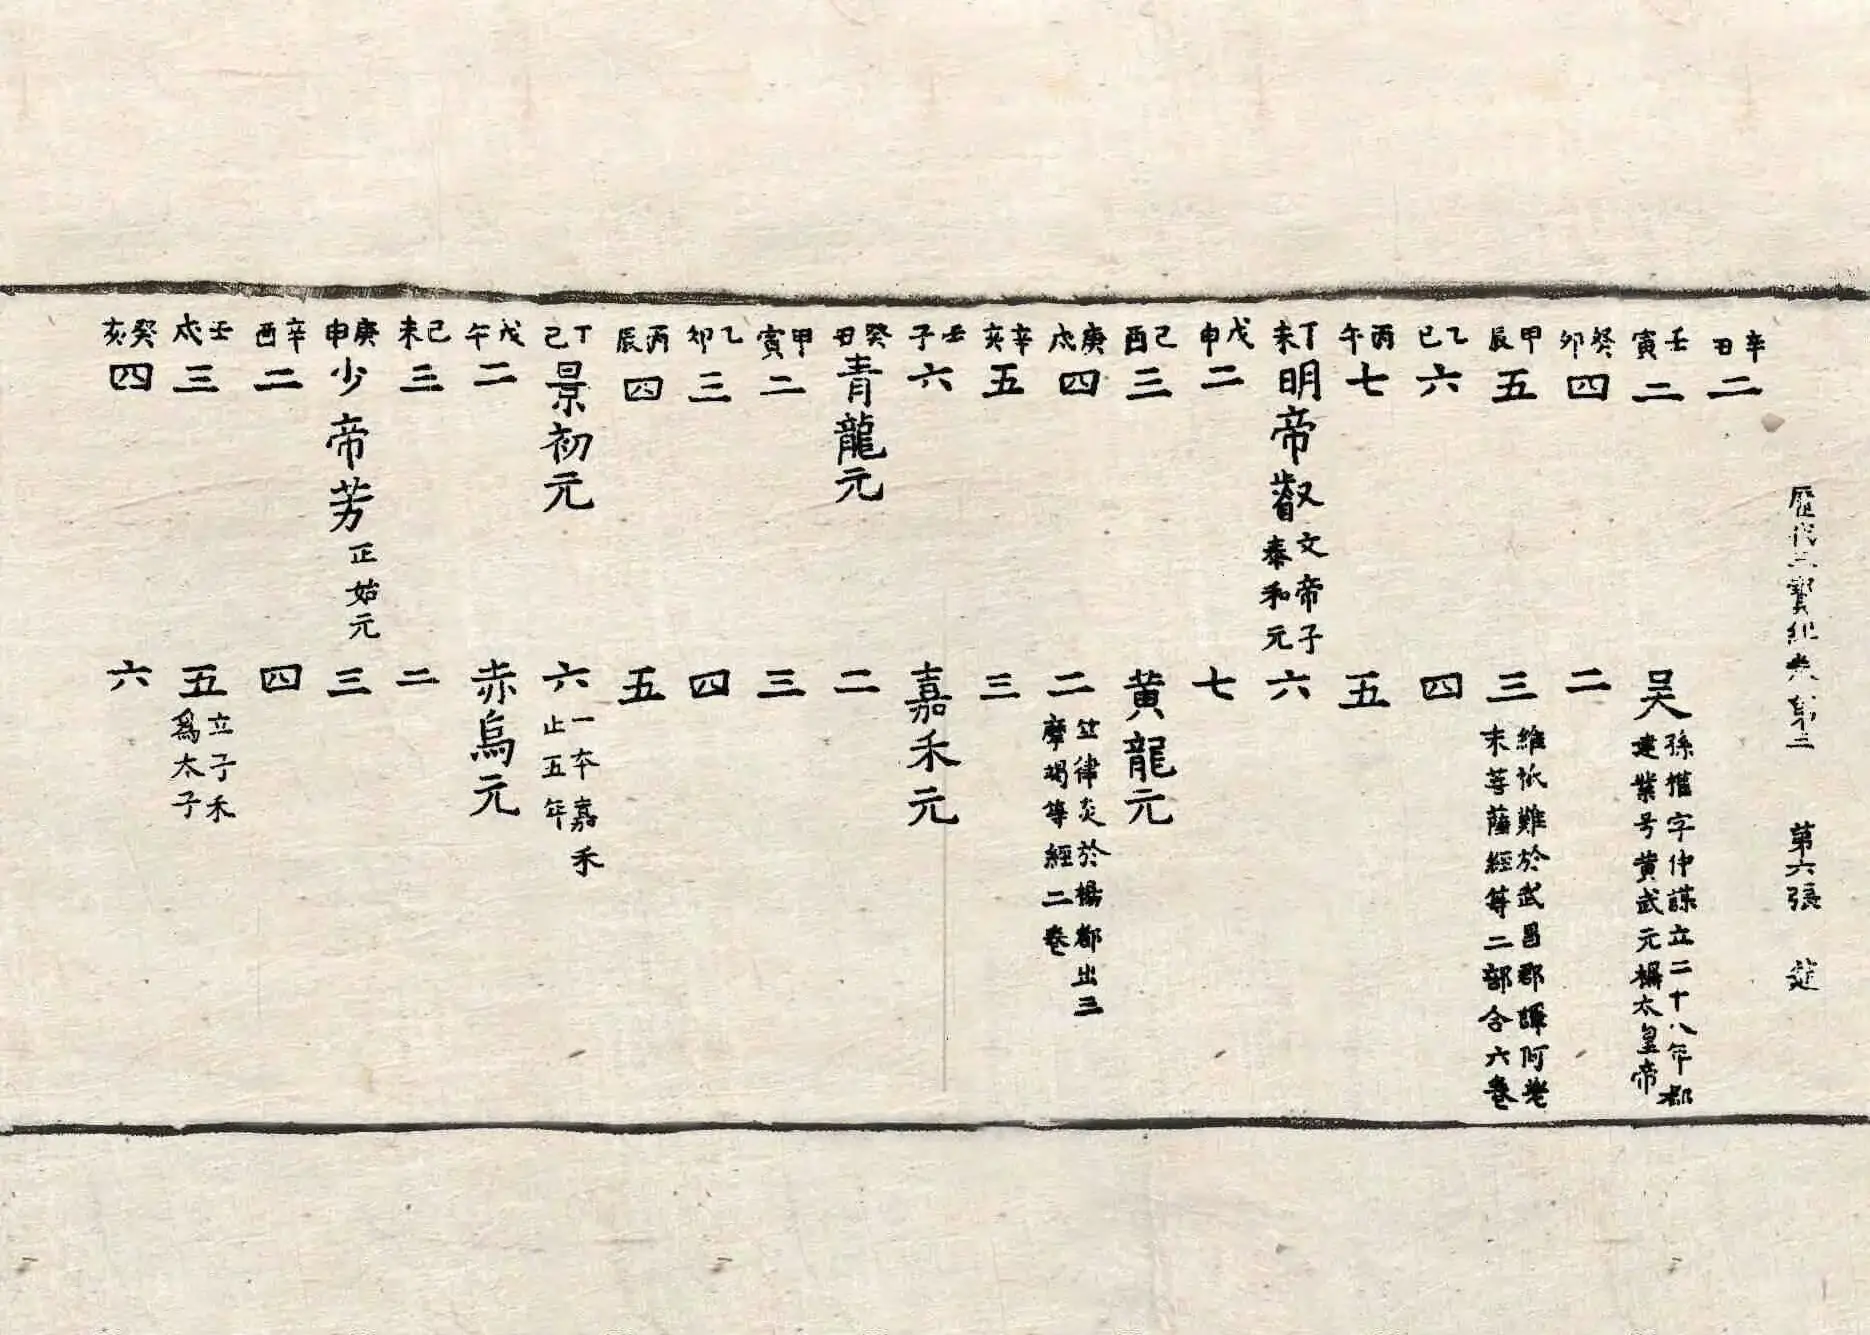 歷代三寶紀卷第三 第六張
辛丑 二
壬寅 二 吳 孫權字仲謀立二十八年都
建業号黄武元稱太皇帝
癸卯 四 二
甲辰 五 三 維祇難於武昌郡譯阿差
末菩薩經等二部合六卷
乙巳 六 四
丙午 七 五
丁未 明帝叡 文帝子
泰和元 六
戊申 二 七
己酉 三 黄龍元
庚戌 四 二 竺律炎於楊都出三
摩竭等經二卷
辛亥 五 三
壬子 六 嘉禾元
癸丑 青龍元 二
甲寅 二 三
乙卯 三 四
丙辰 四 五
丁巳 景初元 六 一本嘉禾
止五年
戊午 二 赤烏元
己未 三 二
庚申 少帝芳 正始元 三
辛酉 二 四
壬戌 三 五 立子禾
爲太子
癸亥 四 六